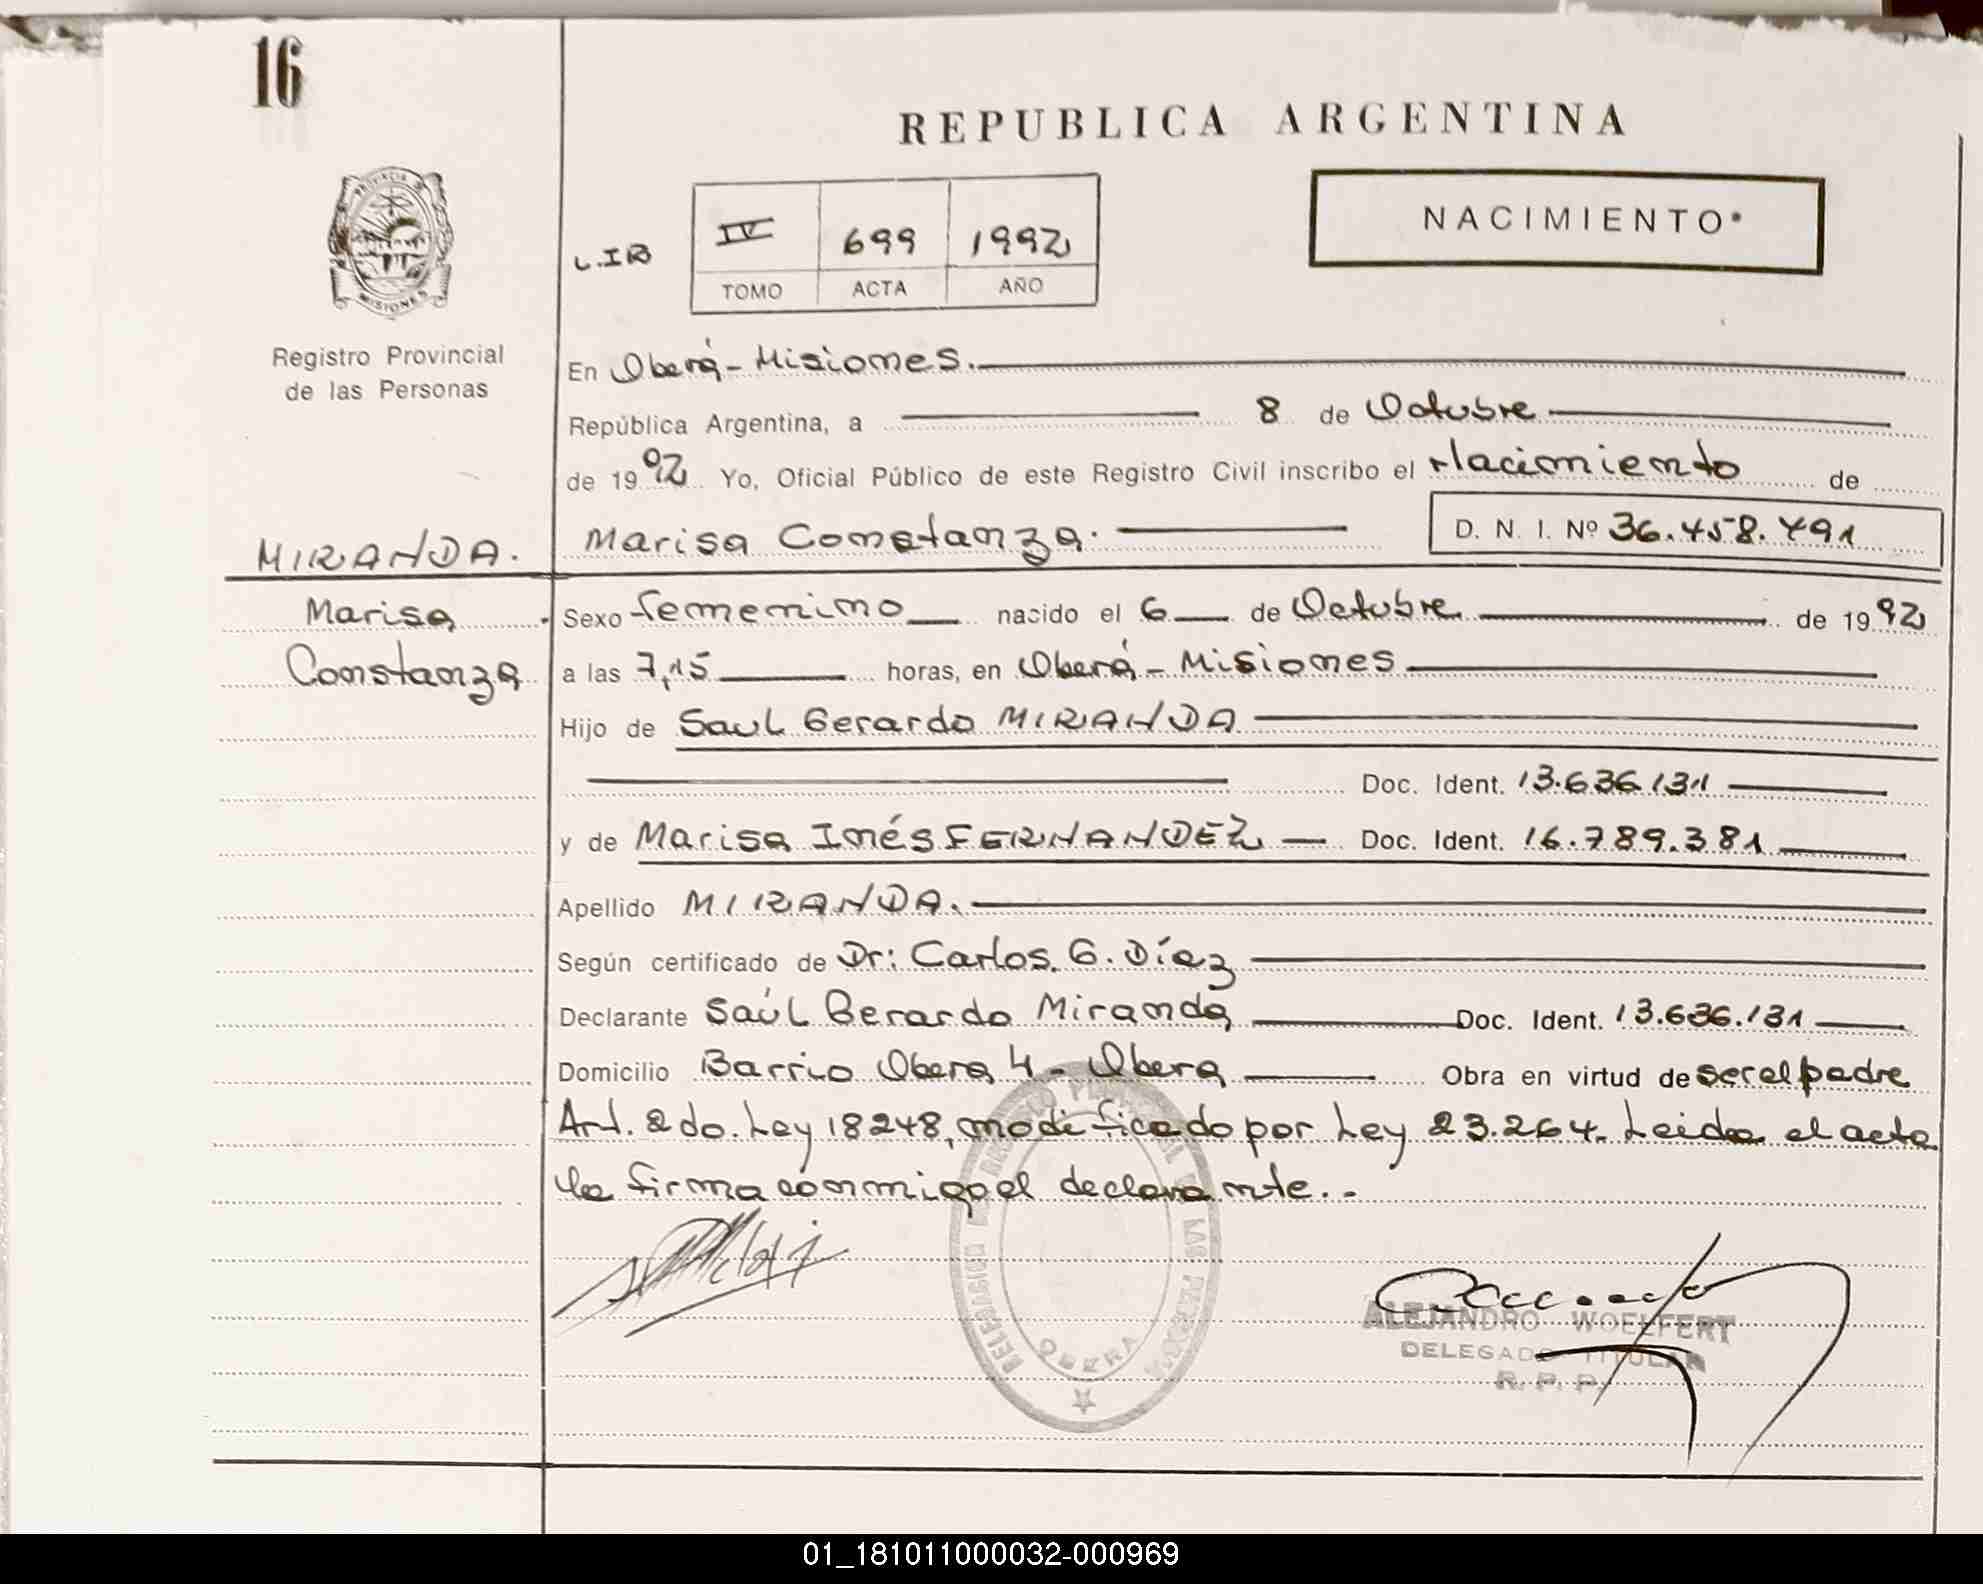 16
REPUBLICA ARGENTINA
PROVINCIA DE
MISIONES
Registro Provincial
de las Personas
L.IB
IV 699 1992
TOMO ACTA AÑO
NACIMIENTO
En Oberá - Misiones.
República Argentina, a 8 de Octubre
de 1992 Yo, Oficial Público de este Registro Civil inscribo el Nacimiento de
MIRANDA. Marisa Constanza. D. N. I. Nº 36.458.491
Marisa Sexo femenino nacido el 6 de Octubre de 1992
Constanza a las 7,15 horas, en Oberá - Misiones
Hijo de Saul Gerardo MIRANDA
Doc. Ident. 13.636.131
y de Marisa Inés FERNANDEZ Doc. Ident. 16.789.381
Apellido MIRANDA.
Según certificado de Dr: Carlos. G. Díaz
Declarante Saúl Gerardo Miranda Doc. Ident. 13.636.131
Domicilio Barrio Obera 4 - Obera Obra en virtud de ser el padre
Art. 2do. Ley 18248, modificado por Ley 23.264. Leida el acta
la firma conmigo el declarante..-
DELEGACION DE REGISTRO PROVINCIAL DE LAS PERSONAS
OBERA
ALEJANDRO WOELFERT
DELEGADO TITULAR
R. P. P.
01_181011000032-000969